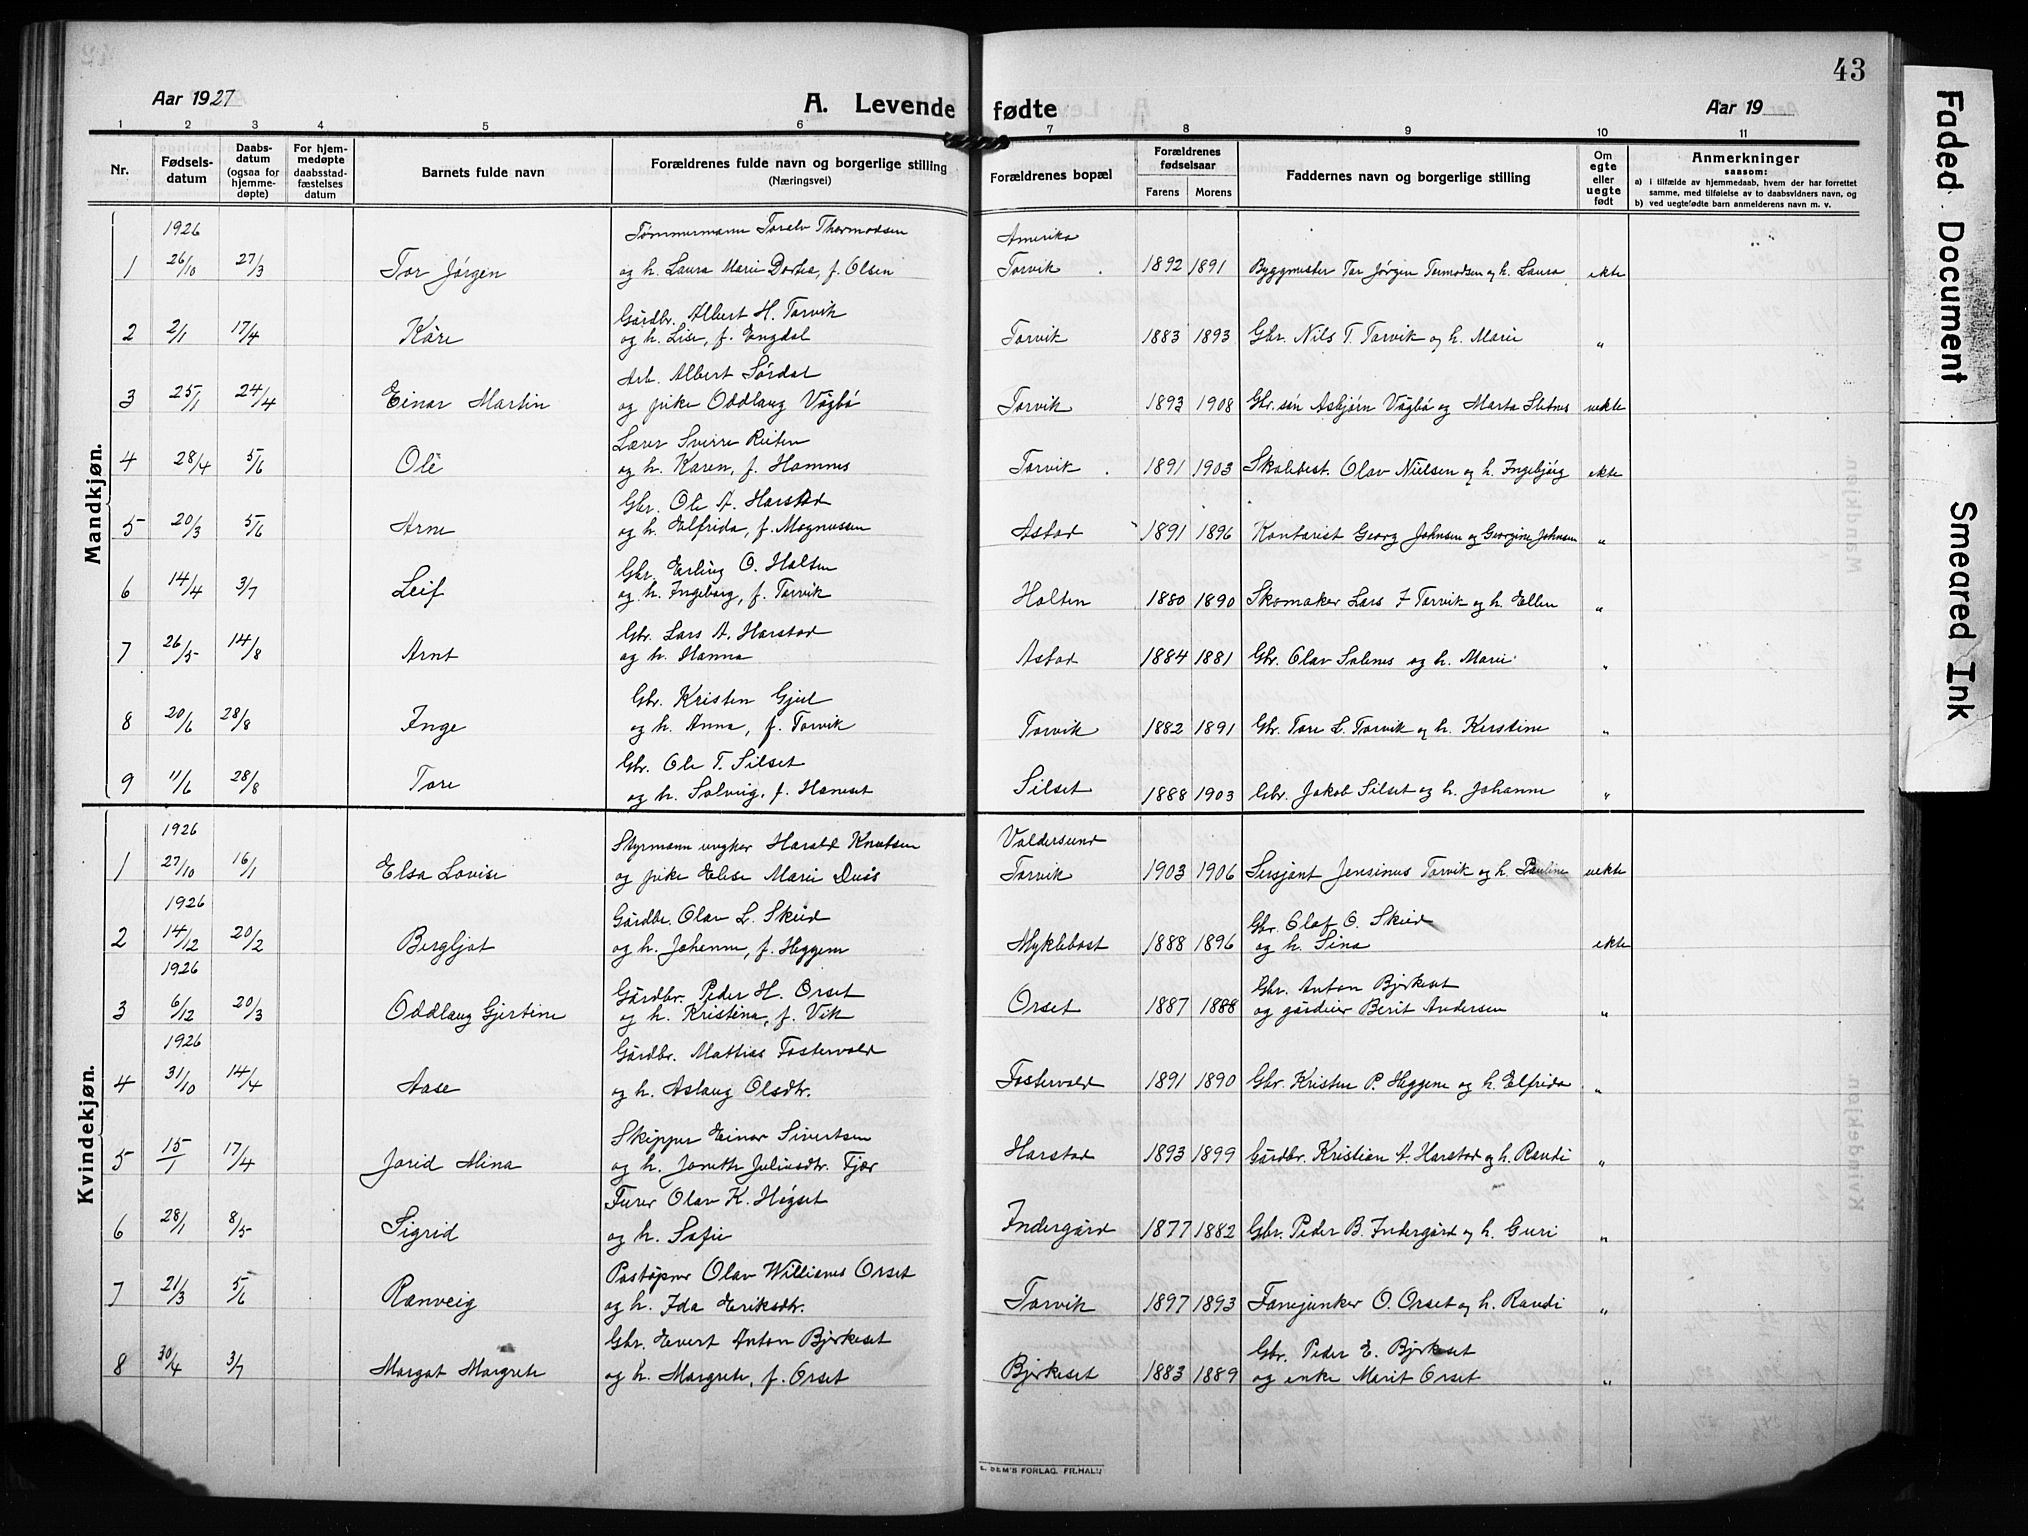 43
Aar 1927
A. Levende fødte
Aar 19
1 2 3 4 5 6 7 8 9 10 11
Nr.
Fødsels-
datum
Daabs-
datum
(ogsaa for
hjemme-
døpte)
For hjem-
medøpte
daabsstad-
fæstelses
datum
Barnets fulde navn
Forældrenes fulde navn og borgerlige stilling
(Næringsvei)
Forældrenes bopæl
Forældrenes
fødselsaar
Farens Morens
Faddernes navn og borgerlige stilling
Om
egte
eller
uegte
født
Anmerkninger
saasom:
a) i tilfælde av hjemmedaab, hvem der har forrettet
samme, med tilføielse av to daabsvidners navn, og
b) ved uegtefødte barn anmelderens navn m. v.
Mandkjøn.
1926 Tømmermann Toralv Thormodsen Amerika
1 26/10 27/3 Tor Jörgen og h. Laura Marie Dortea, f. Olsen Torvik 1892 1891 Byggmester Tor Jörgen Tormodsen og h. Laura ekte
Gårdbr. Albert H. Torvik
2 2/1 17/4 Kåre og h. Lise, f. Engdal Torvik 1883 1893 Gbr. Nils T. Torvik og h. Marie "
Arb. Albert Sördal
3 25/1 24/4 Einar Martin og pike Oddlaug Vågbö Torvik 1893 1908 Gbr. sön Asbjörn Vågbö og Marta Sletnes uekte
Lærer Sverre Reiten
4 28/4 5/6 Ole og h. Karen, f. Hamnes Torvik 1891 1903 Skolebest. Olav Nielsen og h. Ingebjörg ekte
Gbr. Ole A. Harstad
5 20/3 5/6 Arne og h. Elfrida, f. Magnussen Astad 1891 1896 Kontorist Georg Johnsen og Georgine Johnsen "
Gbr. Erling O. Holten
6 14/4 3/7 Leif og h. Ingeborg, f. Torvik Holten 1880 1890 Skomaker Lars T Torvik og h. Ellen "
Gbr. Lars A. Harstad
7 26/5 14/8 Arnt og h. Hanna Astad 1884 1881 Gbr. Olav Solenes og h. Marie "
Gbr. Kristen Gjül
8 20/6 28/8 Inge og h. Anna, f. Torvik Torvik 1882 1891 Gbr. Tore L. Torvik og h. Kerstine "
Gbr. Ole T. Silset
9 11/6 28/8 Tore og h. Solveig, f. Haneset Silset 1888 1903 Gbr. Jakob Silset og h. Johanne "
Kvindekjøn.
1926 Styrmann ungkar Harald Knutsen Valdersund
1 27/10 16/1 Elsa Lovise og pike Elise Marie Duås Torvik 1903 1906 Sersjant Jensinus Torvik og h. Pauline uekte
1926 Gårdbr. Olav L. Skeid Gbr. Olaf O. Skeid
2 14/12 20/2 Bergljot og h. Johanne, f. Heggem Myklebost 1888 1896 og h. Sina ekte
1926 Gårdbr. Peder H. Orset Gbr. Anton Bjerkeset
3 6/12 20/3 Oddlaug Gjertine og h. Kristina, f. Vik Orset 1887 1888 og gårdeier Berit Andersen "
1926 Gårdbr. Mattias Fostervold
4 31/10 14/4 Aase og h. Aslaug Olsdtr. Fostervold 1891 1890 Gbr. Kristen P. Heggem og h. Elfrida "
Skipper Einar Sivertsen
5 15/1 17/4 Jorid Mina og h. Joneth Juliusdtr. Fjær Harstad 1893 1899 Gårdbr. Kristian A. Harstad og h. Randi "
Furer Olav K. Högset
6 28/1 8/5 Sigrid og h. Sofie Indergård 1877 1882 Gbr. Peder B. Indergård og h. Guri "
Poståpner Olav Willianes Orset
7 21/3 5/6 Ranveig og h. Ida Eriksdtr. Torvik 1897 1893 Fanejunker O. Orset og h. Randi "
Gbr. Evert Anton Bjerkeset Gbr. Peder E. Bjerkeset
8 30/4 3/7 Margot Margrete og h. Margrete, f. Orset Bjerkeset 1883 1889 og enke Marit Orset "
E. SEM'S FORLAG. FR.HALD
Faded Document
Smeared Ink